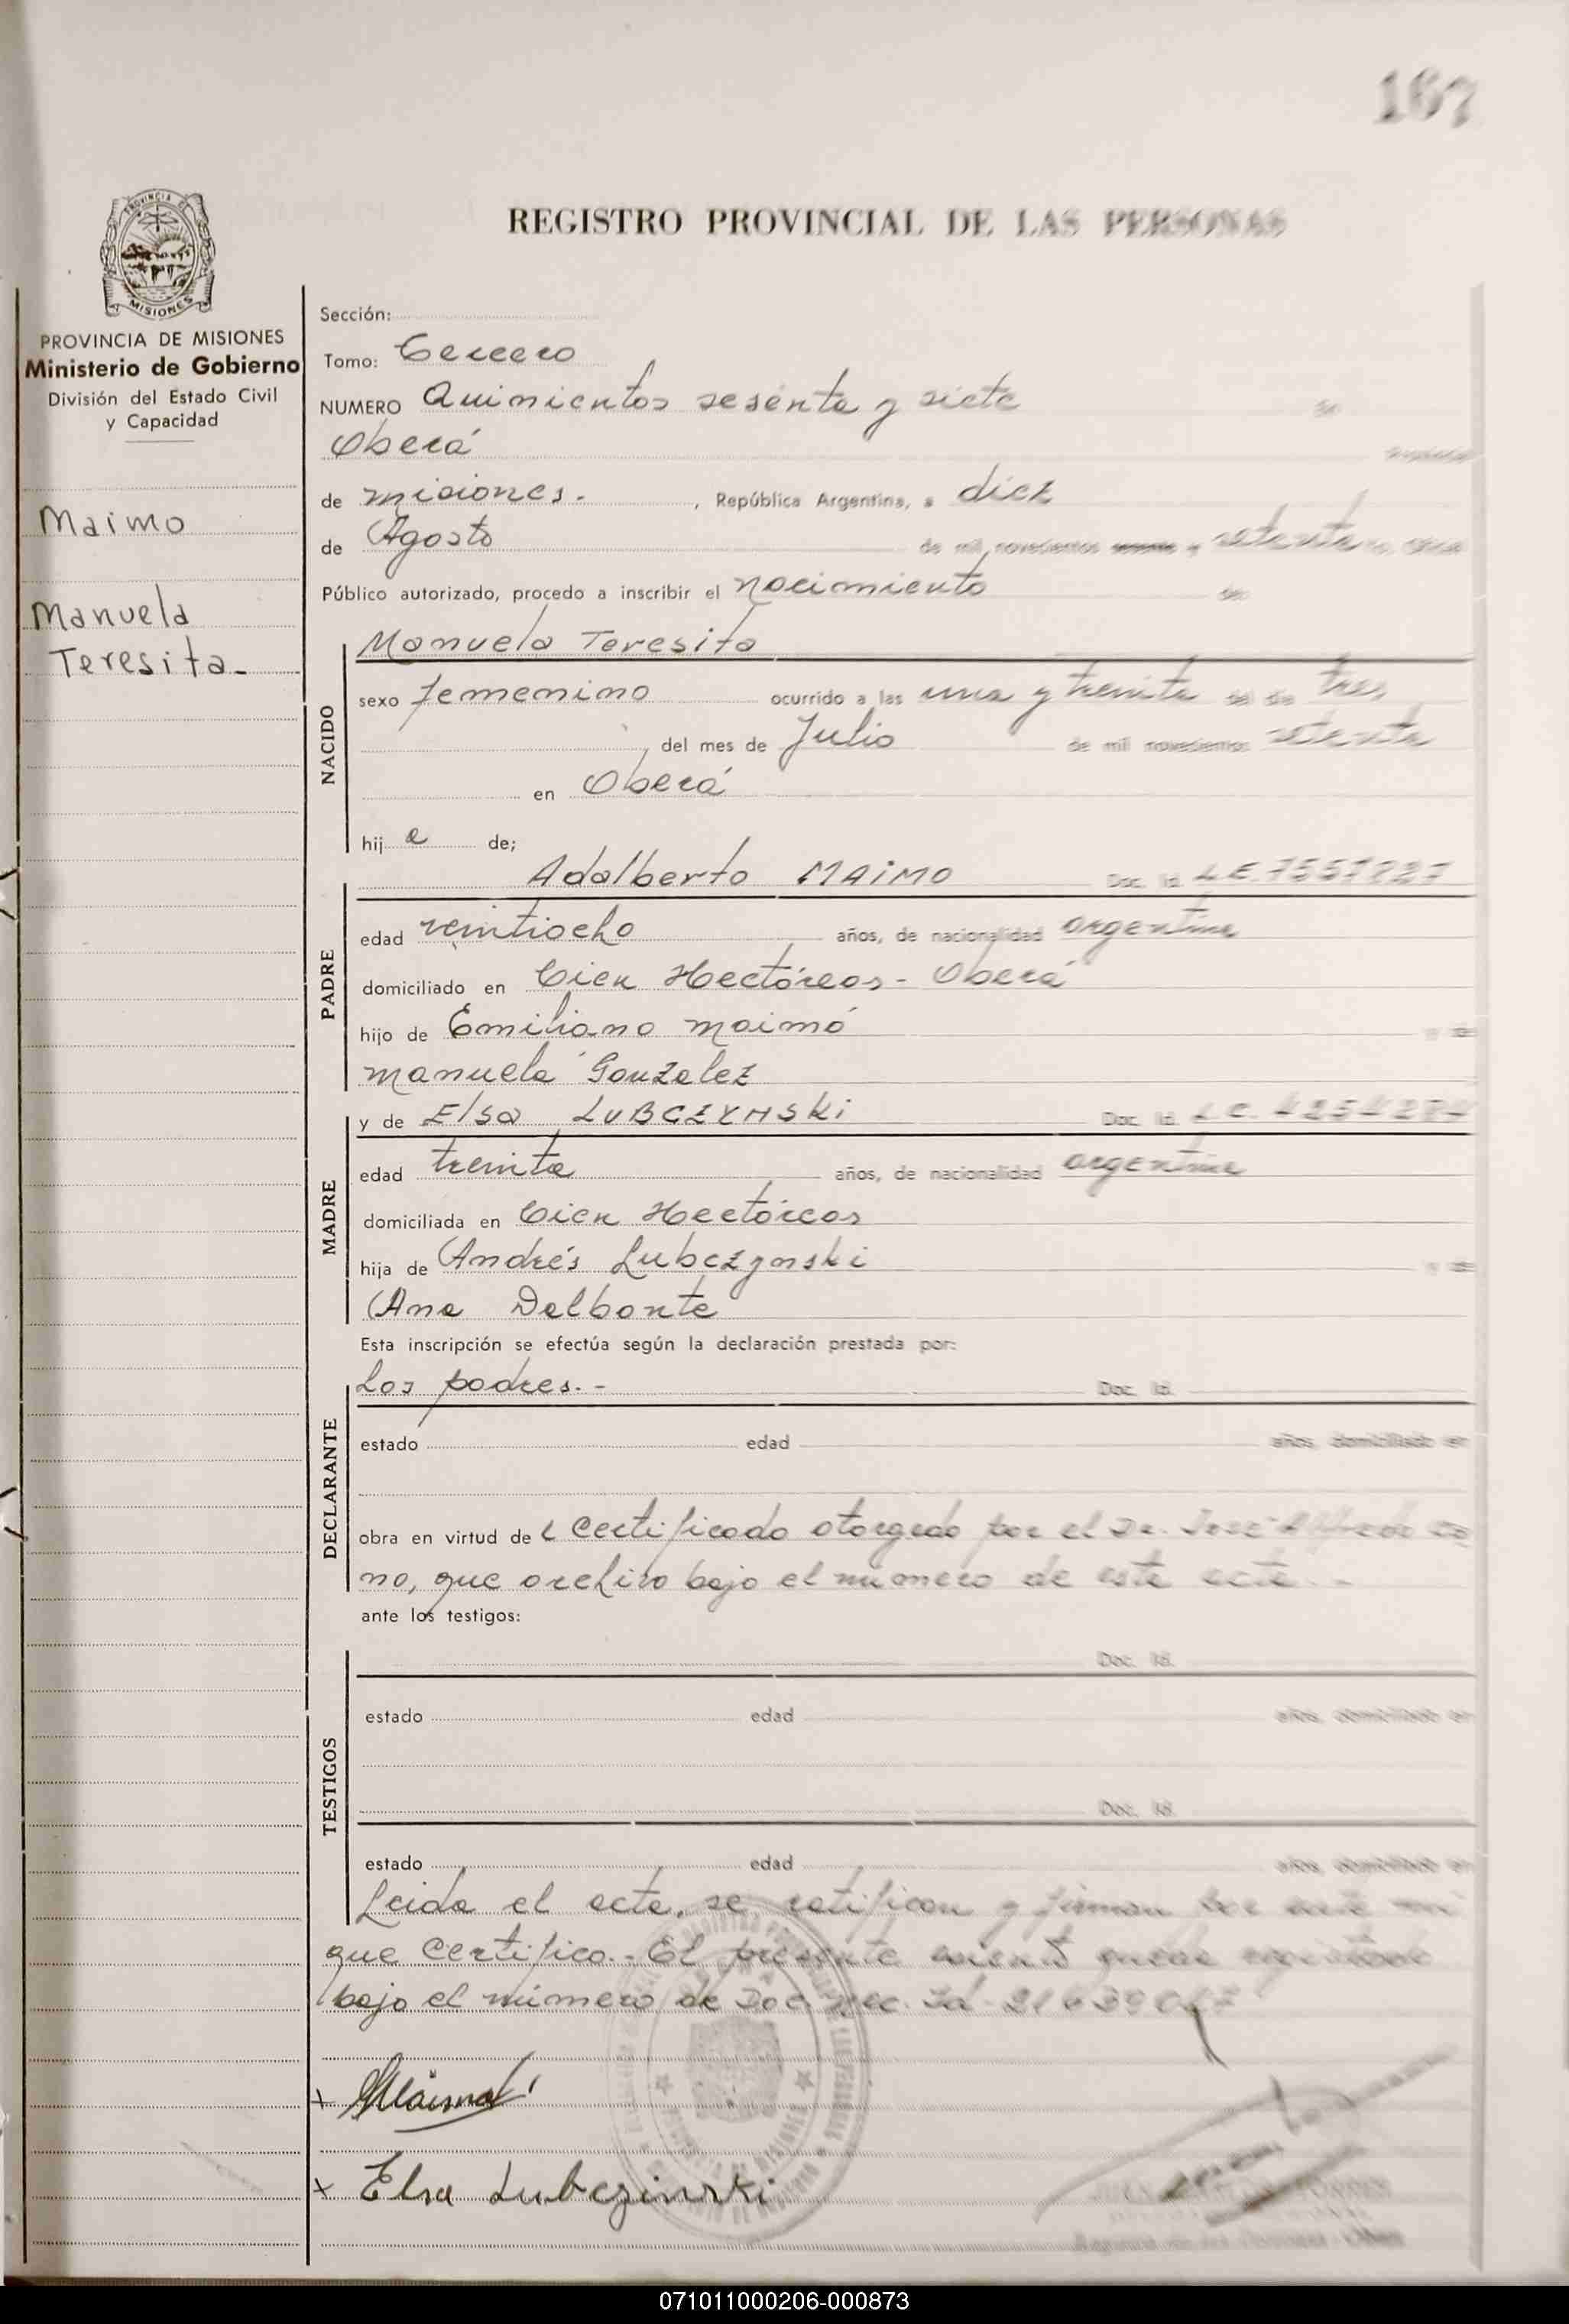 167
REGISTRO PROVINCIAL DE LAS PERSONAS
PROVINCIA DE MISIONES
Ministerio de Gobierno
División del Estado Civil
y Capacidad
Maimo
Manuela
Teresita-
Sección:
Tomo: Tercero
NUMERO Quinientos sesenta y siete En
Oberá Provincia
de misiones. , República Argentina, a diez
de Agosto de mil novecientos sesenta y setenta
Público autorizado, procedo a inscribir el nacimiento de:
NACIDO
Manuela Teresita
sexo femenino ocurrido a las una y treinta del día tres
del mes de Julio de mil novecientos setenta
en Oberá
hij a de;
PADRE
Adalberto MAIMO Doc. Id. L.E.
edad veintiocho años, de nacionalidad argentina
domiciliado en Cien Hectáreas - Oberá
hijo de Emiliano maimó y de
manuela Gonzalez
MADRE
y de Elsa LUBCZYNSKi Doc. Id. L.C.
edad treinta años, de nacionalidad argentina
domiciliada en Cien Hectáreas
hija de Andrés Lubczynski y de
Ana Delbonte
Esta inscripción se efectúa según la declaración prestada por:
DECLARANTE
Los padres. - Doc. Id.
estado edad años, domiciliado en
obra en virtud de l certificado otorgado por el Dr. José Alfredo
no, que archivo bajo el número de esta acta. -
ante los testigos:
TESTIGOS
Doc. Id.
estado edad años, domiciliado en
Doc. Id.
estado edad años, domiciliado en
Leida el acta, se ratifican y firman por ante mi
que certifico.- El presente asiento queda registrado
bajo el número de Doc. Nac. Id.
x Maimó
x Elsa Lubczinski
071011000206-000873